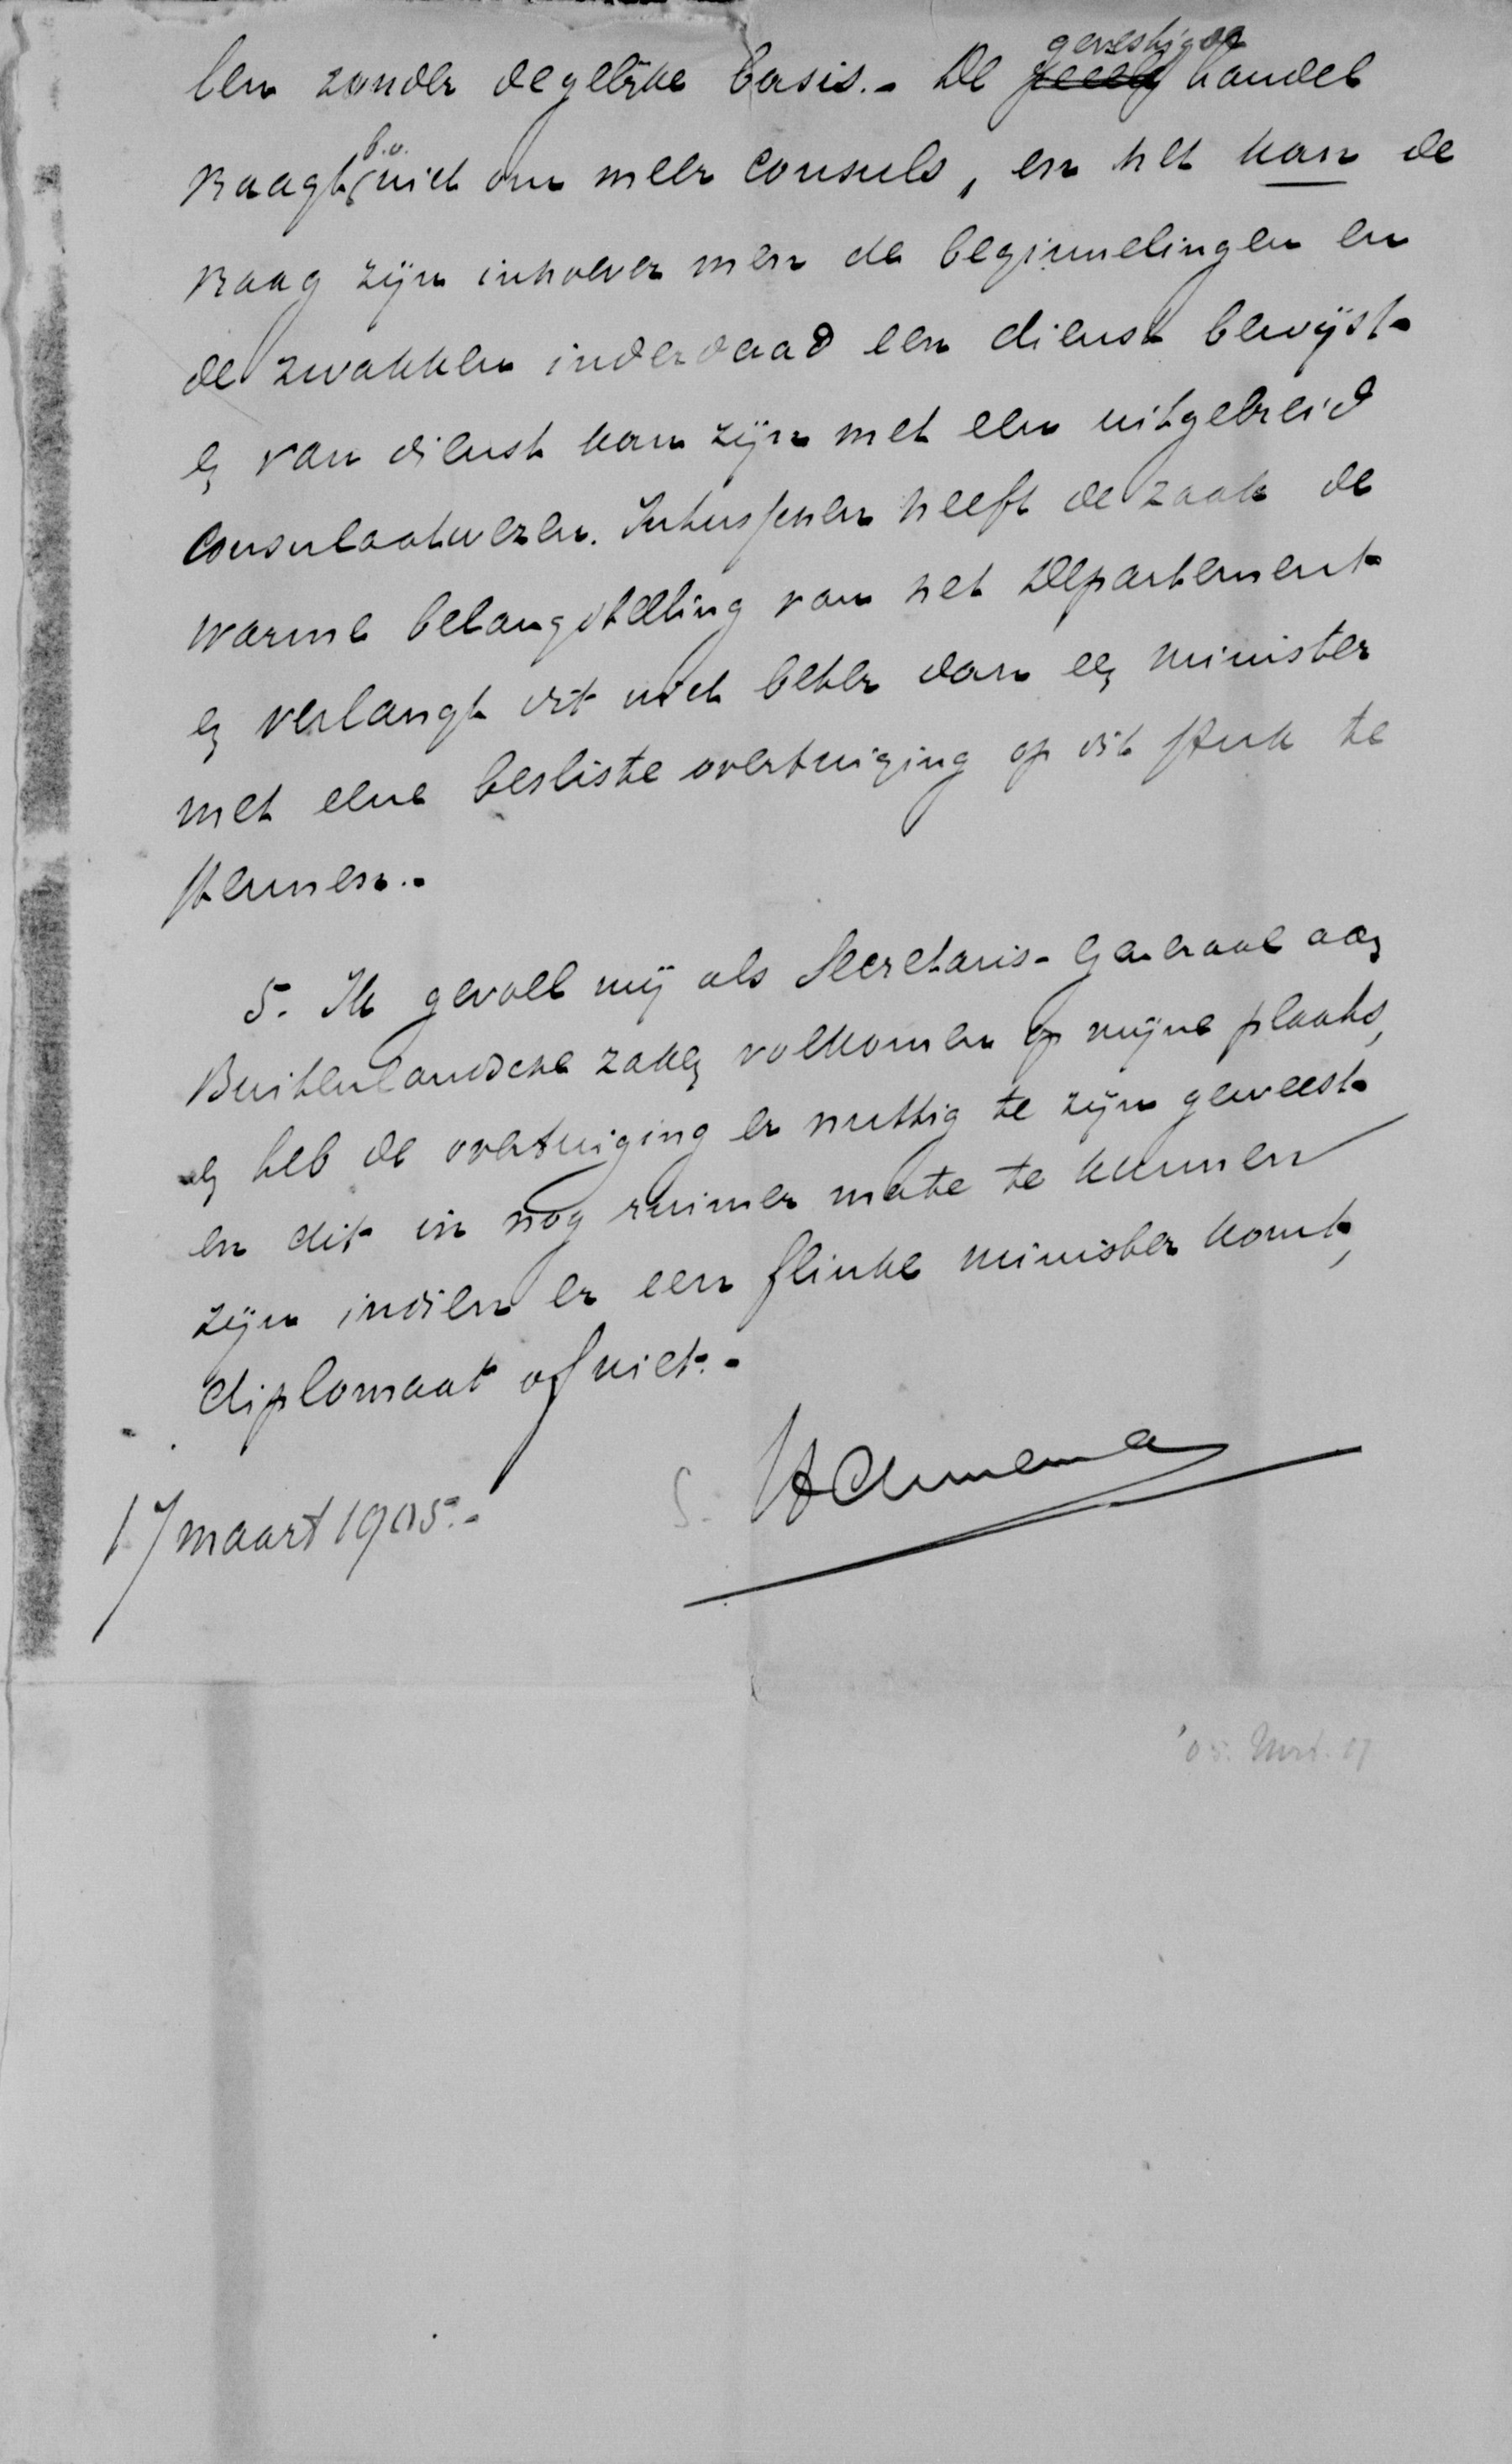 len zonder degelijke basis.- De gevestigde handel
vraagt b.v. niet om meer consuls, en het kan de
vraag zijn inhoever men de beginnelingen en
de zwakken inderdaad een dienst bewijst
en van dienst kan zijn met een uitgebreid
consulaatwezen. Intusschen heeft de zaak de
warme belangstelling van het Departement
en verlangt dit niet beter dan een minister
met eene besliste overtuiging op dit stuk te
steunen.-
5. Ik gevoel mij als Secretaris-Generaal aan
Buitenlandsche zaken volkomen op mijne plaats,
en heb de overtuiging er nuttig te zijn geweest
en dit in nog ruimer mate te kunnen
zijn indien er een flinke minister komt,
diplomaat of niet.-
17 maart 1905.-
S. Hannema
'05. Mrt. 17